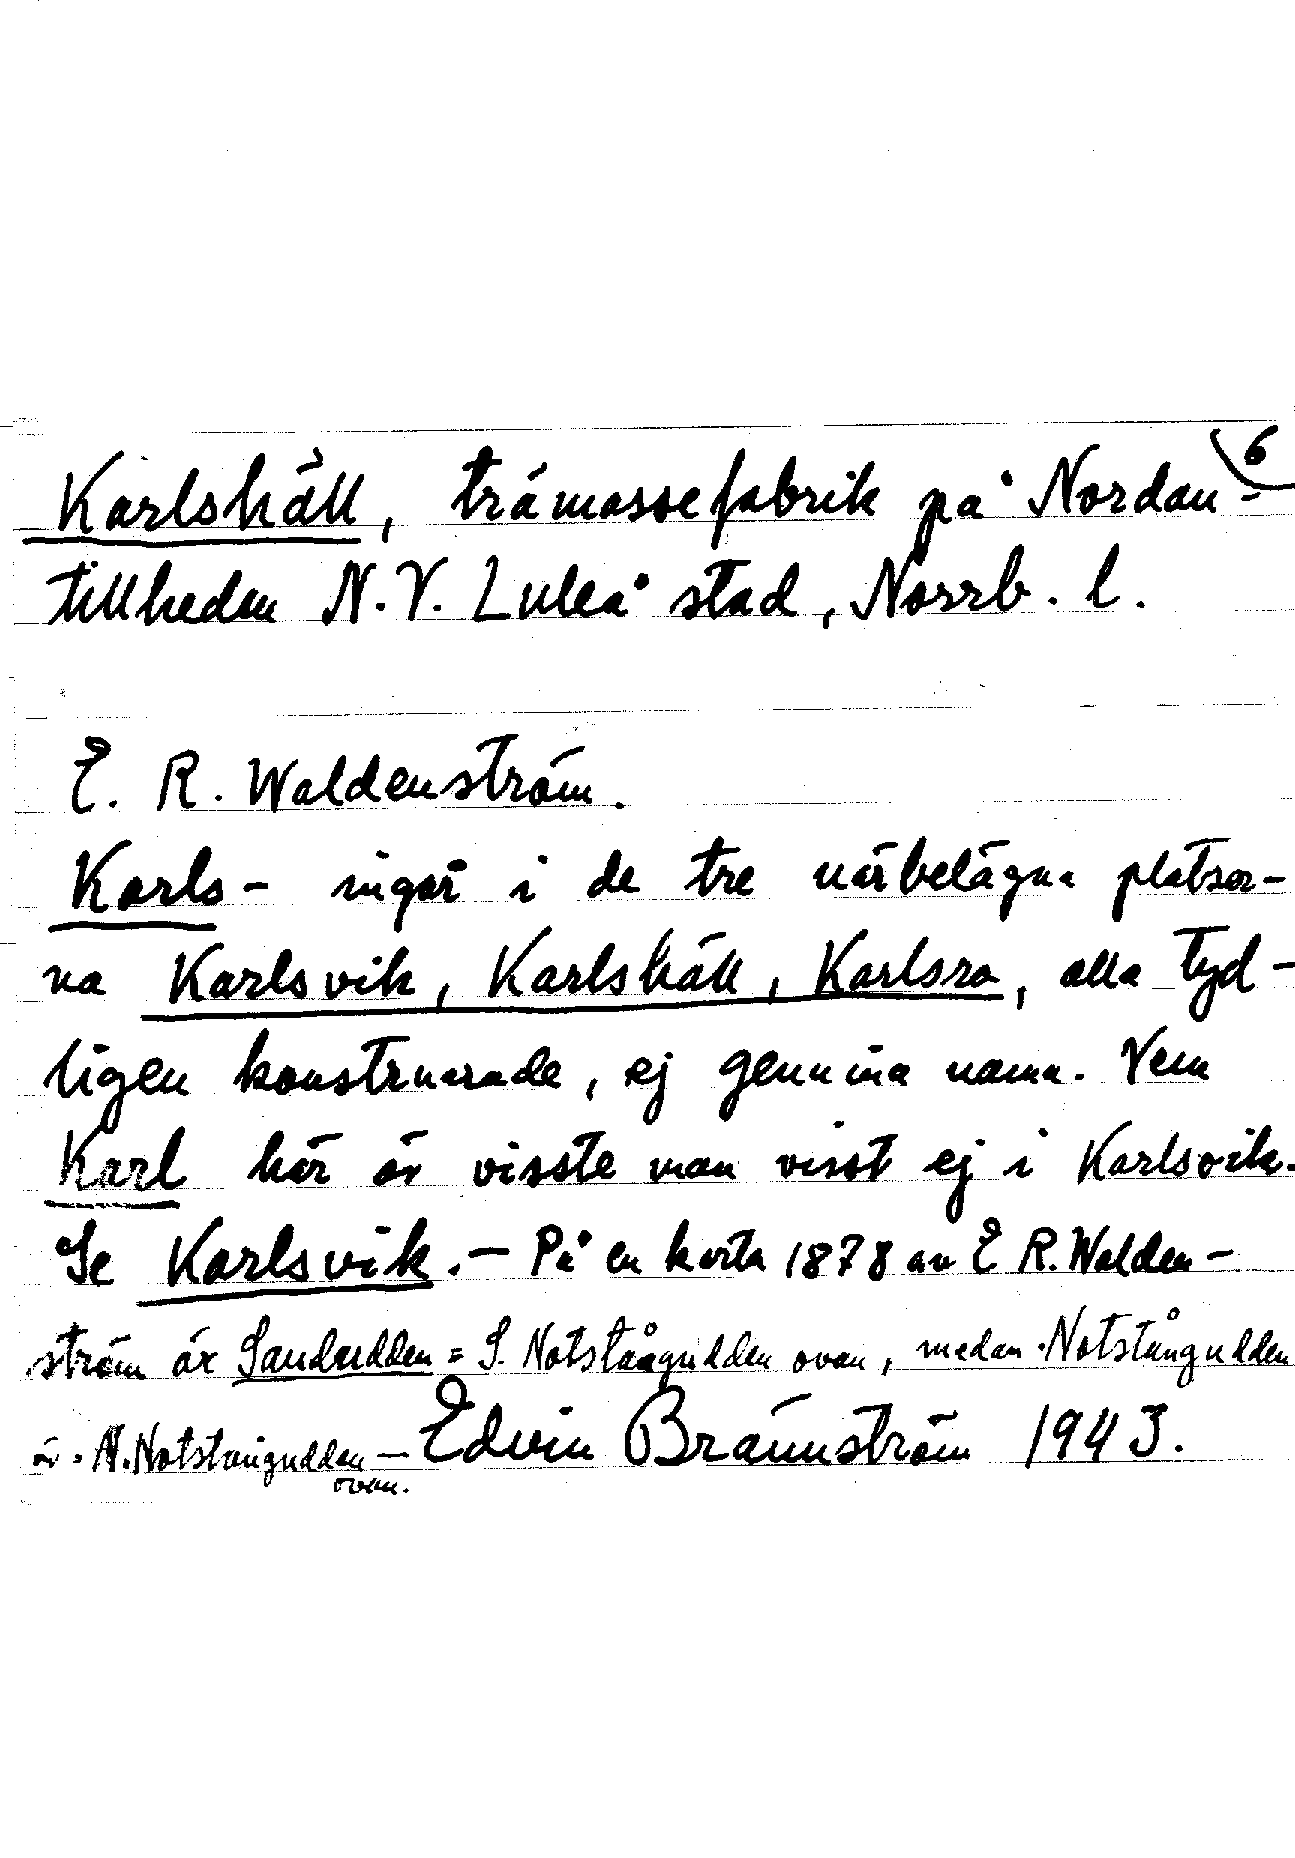 6
Karlshäll, trämassefabrik på Nordan-
tillheden N.V. Luleå stad, Norrb. l.
E. R. Waldenström.
Karls- ingår i de tre närbelägna platser-
na Karlsvik, Karlshäll, Karlsro, alla tyd-
ligen konstruerade, ej genuina namn. Vem
Karl här är visste man visst ej i Karlsvik.
Se Karlsvik. - På en karta 1878 av E R. Walden-
ström är Sandudden = S. Notstångudden ovan, medan Notstångudden
är N. Notstångudden - Edvin Brännström 1943.
ovan.